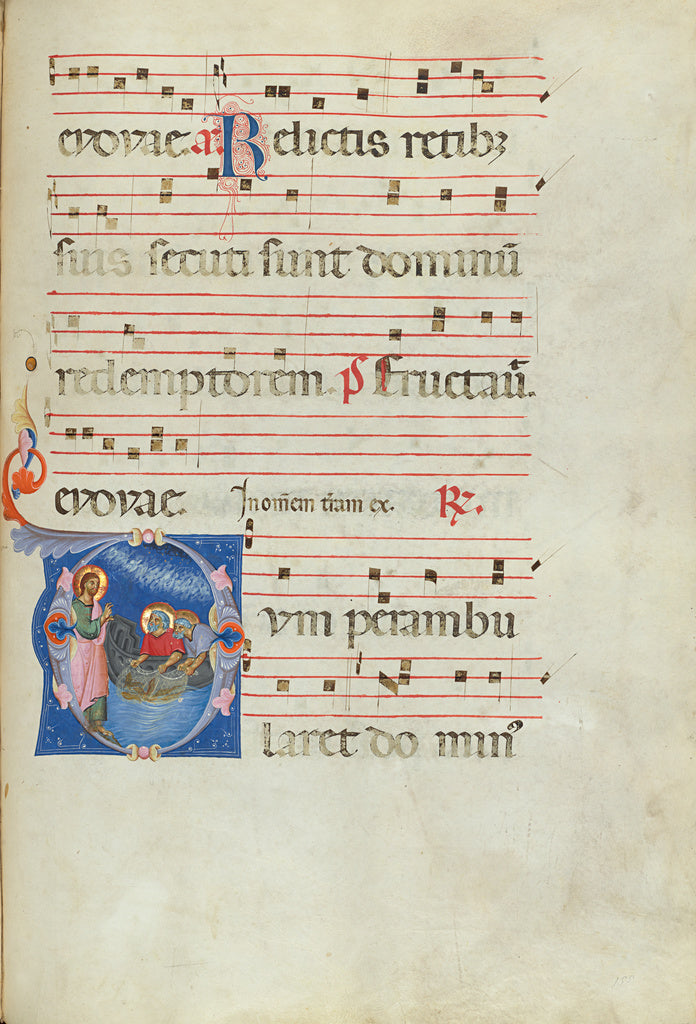 evovae. a. Relictis retibꝫ
suis secuti sunt dominū
redemptorem. ps Eructaū.
evovae. In om̄em t̄ram ex. ℟.
vm perambu
laret do min᾿